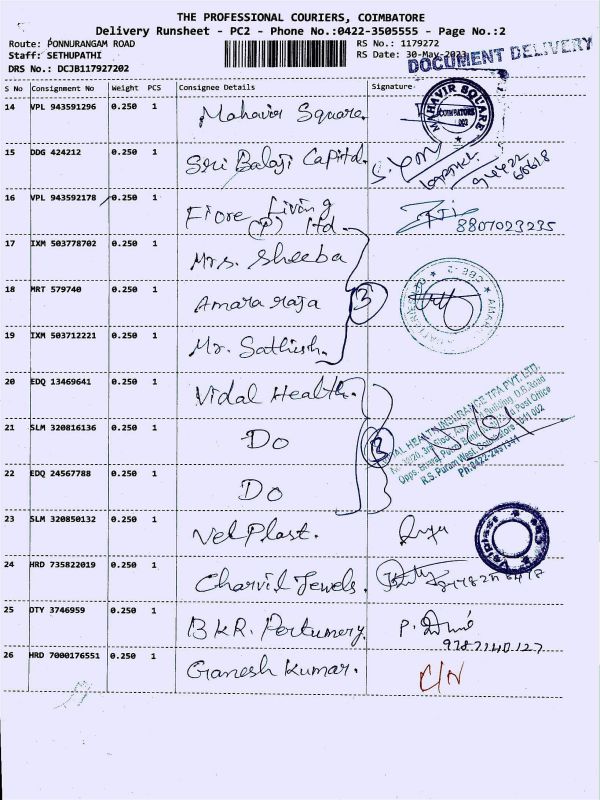 THE PROFESSIONAL COURIERS, COIMBATORE
Delivery Runsheet - PC2 - Phone No.:0422-3505555 - Page No.:2
Route: PONNURANGAM ROAD RS No.: 1179272
Staff: SETHUPATHI RS Date: 30-May-2023
DOCUMENT DELIVERY
DRS No.: DCJB117927202
S No Consignment No Weight PCS Consignee Details Signature
14 VPL 943591296 0.250 1 Mahavir Square.
MAHAVIR SQUARE
COIMBATORE
15 DDG 424212 0.250 1 Sri Balaji Capital.
16 VPL 943592178 0.250 1 Fiore Living
(P) ltd. 8807023235
17 IXM 503778702 0.250 1 Mrs. Sheeba
18 MRT 579740 0.250 1 Amara raja 3
19 IXM 503712221 0.250 1 Mr. Sathish.
20 EDQ 13469641 0.250 1 Vidal Health.
21 SLM 320816136 0.250 1 Do 3
HEALTH INSURANCE TPA PVT. LTD.
R.S. Puram West, Coimbatore 641 002
22 EDQ 24567788 0.250 1 Do
23 SLM 320850132 0.250 1 Vel Plast.
24 HRD 735822019 0.250 1 Charvil Jewels.
25 DTY 3746959 0.250 1 BKR. Perfumery.
9787140127
26 HRD 7000176551 0.250 1 Ganesh Kumar. C/N